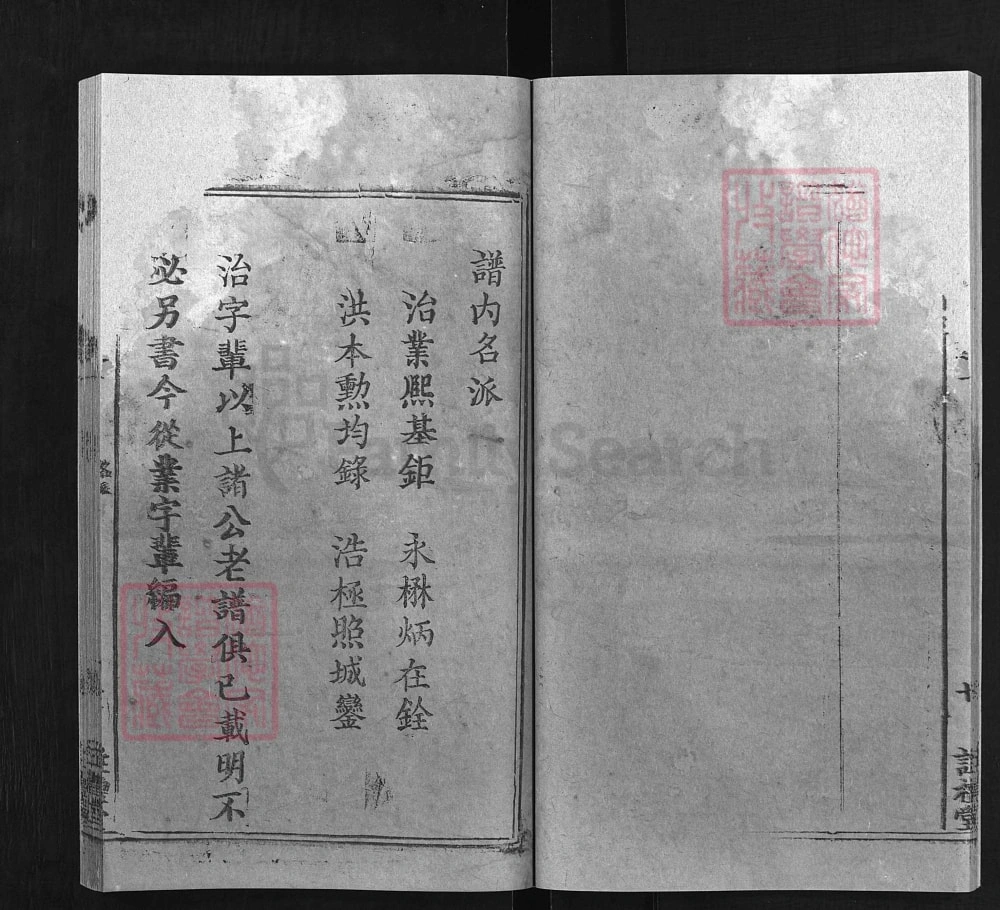 譜内名派
治業熙基鉅　永楙炳在銓
洪本勲均錄　浩極照城鑾
治字輩以上諸公老譜俱已載明不
必另書今從業字輩編入